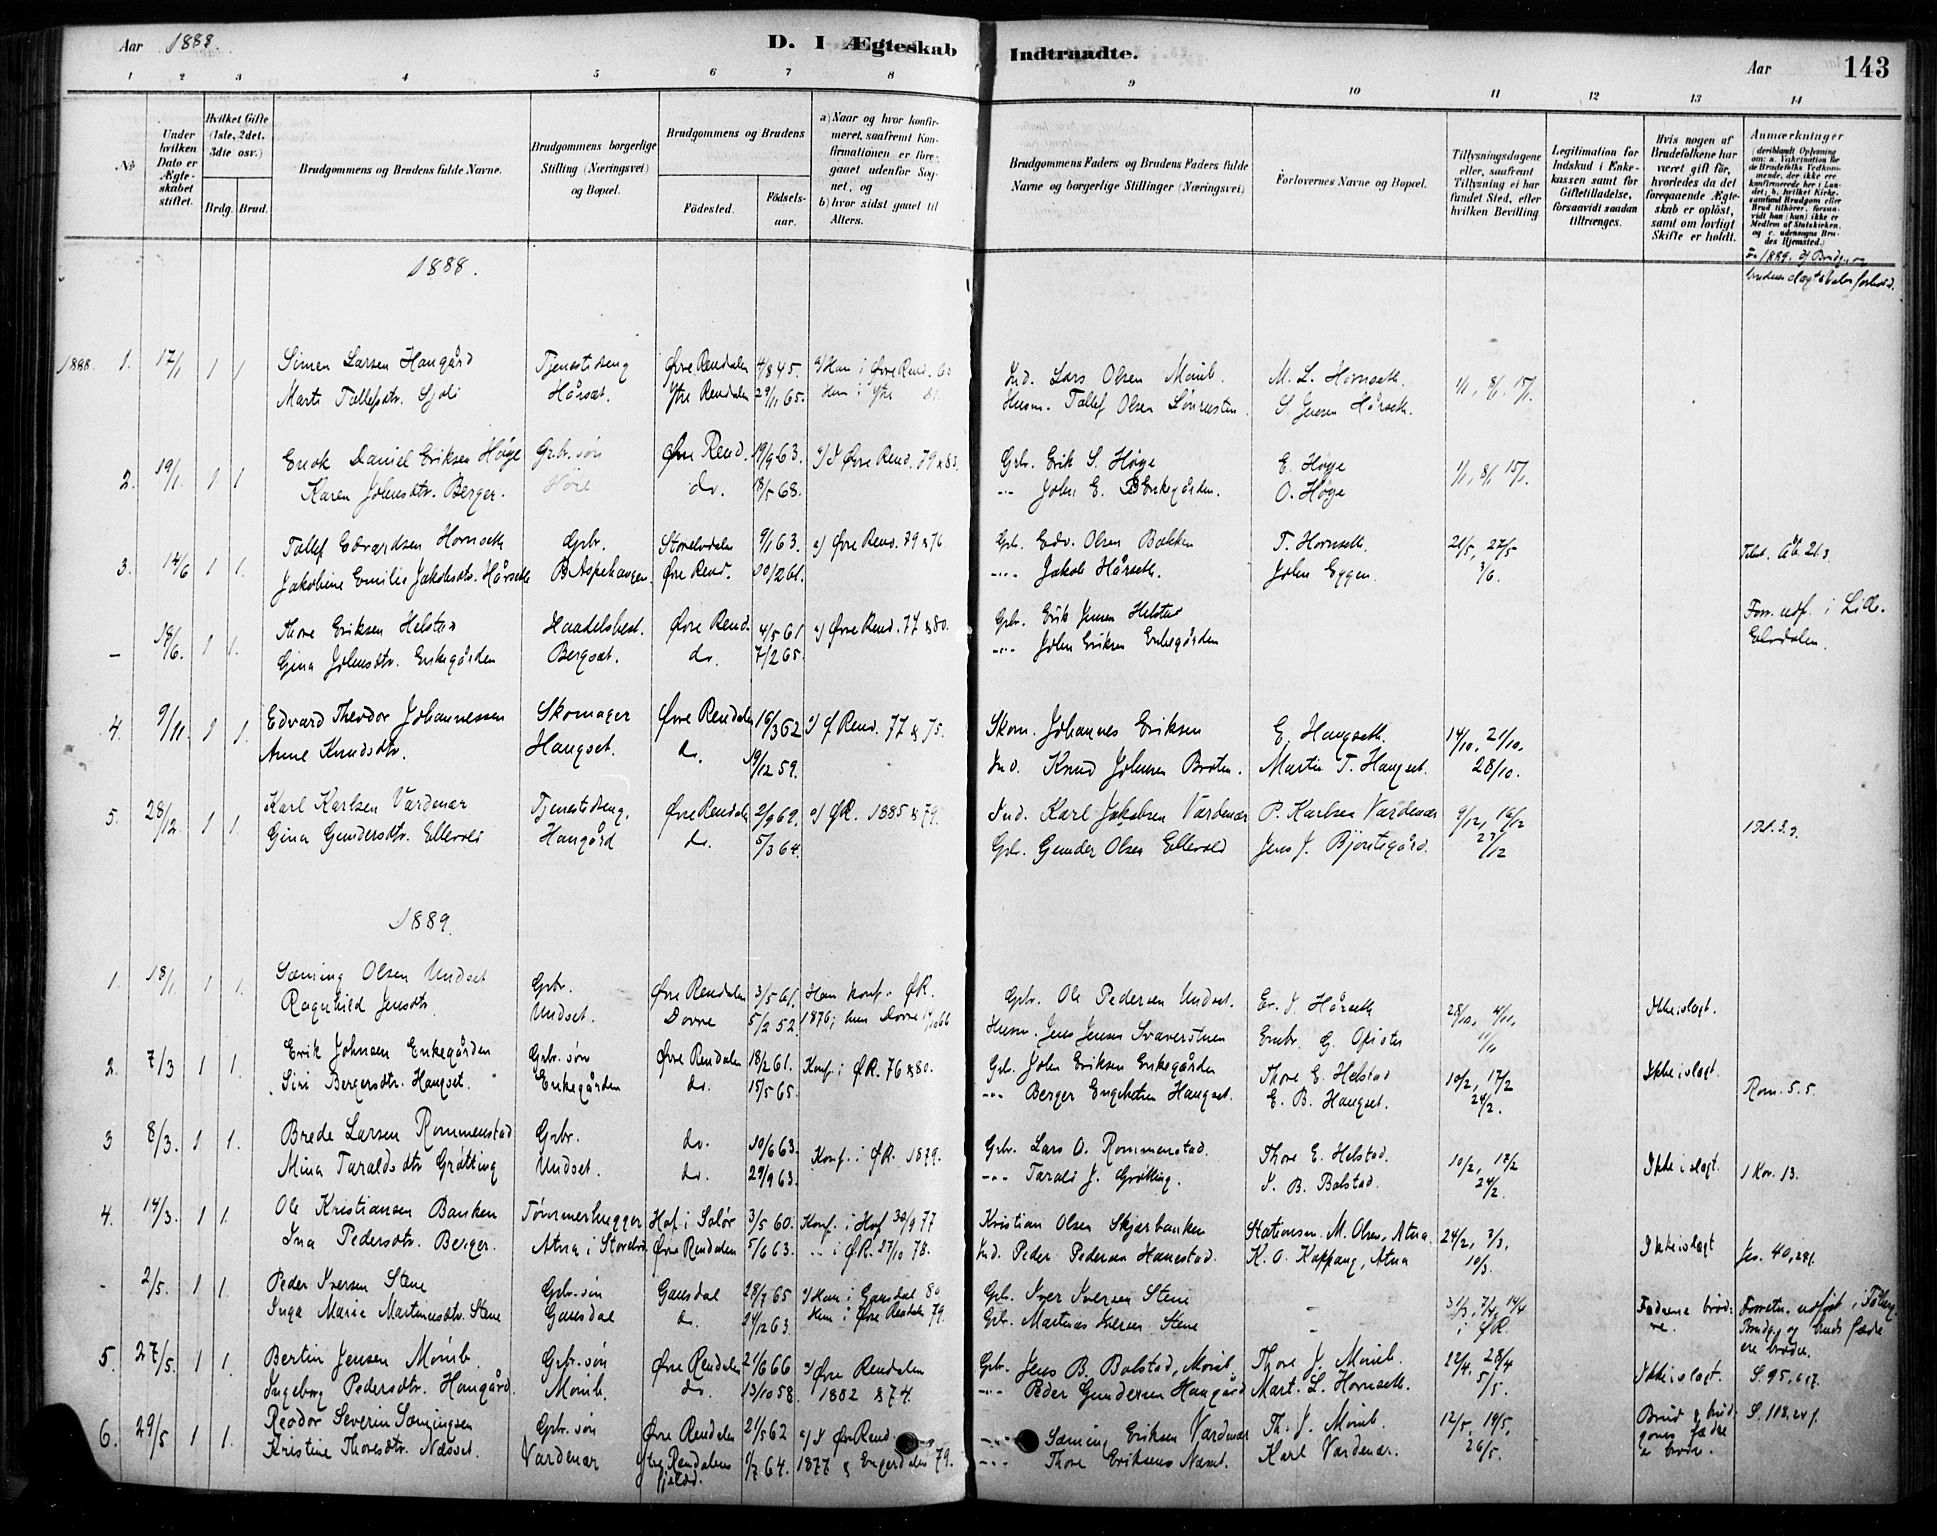 Aar 1888.
D. I Ægteskab Indtraadte.
Aar 143
1 2 3 4 5 6 7 8 9 10 11 12 13 14
No
Under hvilken Dato er Ægteskabet stiftet.
Hvilket Gifte (1ste, 2det, 3die osv.)
Brdg. Brud.
Brudgommens og Brudens fulde Navne.
Brudgommens borgerlige Stilling (Næringsvei) og Bopæl.
Brudgommens og Brudens
Födested.
Födselsaar.
a) Naar og hvor konfirmeret, saafremt Konfirmationen er foregaaet udenfor Sognet, og
b) hvor sidst gaaet til Alters.
Brudgommens Faders og Brudens Faders fulde Navne og borgerlige Stillinger (Næringsvei)
Forlovernes Navne og Bopæl.
Tillysningsdagene eller, saafremt Tillysning ei har fundet Sted, efter hvilken Bevilling
Legitimation for Indskud i Enkekassen samt for Giftetilladelse, forsaavidt saadan tiltrænges.
Hvis nogen af Brudefolkene har været gift för, hvorledes da det foregaaende Ægteskab er oplöst, samt om lovligt Skifte er holdt.
Anmærkninger
1888.
1888. 1. 17/1 1 1 Simen Larsen Haugård Tjenestdreng Øvre Rendalen 4/8 45. Ind. Lars Olsen Momb. M. L. Hornseth. 1/1, 8/1, 15/1.
Marte Tollefsdtr. Sjoli Hårset. Ytre Rendalen 29/11 65. Husm. Tollef Olsen S. Jensen Hårseth.
2. 19/1 1 1 Enok Daniel Eriksen Høye Grb. søn Øvre Rend. 19/9 63. Øvre Rend. 79 & 83. Grb. Erik S. Høye E. Høye 1/1, 8/1 15/1.
Karen Johnsdtr. Berger. do. 18/5 68. John E. Enkegården. O. Høye
3. 14/6 1 1. Tollef Edvardsen Hornseth Grb. Storelvdalen 9/1 63. Øvre Rend. 79 & 76 Grb. Edv. Olsen Bakken T. Hornseth. 21/5, 27/5
Jakobine Emilie Jakobsdtr. Hårseth Aspehaugen Øvre Rend. 30/2 61. Jakob Hårseth. John Eggen. 3/6.
- 14/6. 1 1. Thore Eriksen Helstad Haadelsbest. Øvre Rend. 4/5 61 Øvre Rend. 77 & 80. Grb. Erik Jensen Helstad Forr. udf. i Lille
Gina Johnsdtr. Enkegården Bergset. do. 7/2 65. John Eriksen Enkegården Elvdalen.
4. 9/11. 1 1. Edvard Theodor Johannessen Skomager Øvre Rendalen 16/3 62 Ø Rend. 77 & 75. Skom. Johannes Eriksen E. Haugseth. 14/10, 21/10.
Anne Knudsdtr. Haugset. do. 19/12 59. Ind. Knud Johnsen Broten. Martin T. Haugset. 28/10.
5. 28/12. 1 1. Karl Karlsen Vardenær Tjenestdreng. Øvre Rendalen 2/9 69. ØR. 1885 & 79. Ind. Karl Jakobsen Vardenær P. Karlsen Vardenær 9/12, 16/12
Gina Gundersdtr. Ellevold Haugård do. 5/3 64. Grb. Gunder Olsen Ellevold Jens J. Bjøntegård. 23/12
1889.
1. 18/1 1 1. Sæming Olsen Undset Grb. Øvre Rendalen 3/5 61. Ham konf. i ØR. Grb. Ole Pedersen Undset. Er. J. Hårseth 28/10, 4/11, Ikke i slægt.
Ragnhild Jensdtr. Undset. Dovre 5/2 52 1876; hun Dovre Husm. Jens Jensen Embr. G. 11/11
2. 7/3 1 1. Erik Johnsen Enkegården Grb. søn Øvre Rendalen 18/2 61. Konf. i ØR. 76 & 80. Grb. John Eriksen Enkegården Thore E. Helstad 10/2, 17/2 Ikke i slægt. Rom. 5. 5.
Siri Bergersdtr. Haugset. Enkegården do. 15/5 65. Berger Engebretsen Haugset. E. B. Haugset. 24/2.
3 8/3. 1 1. Brede Larsen Rommenstad Grb. do. 10/6 63. Konf. i ØR. 1879. Grb. Lars O. Rommenstad. Thore E. Helstad. 10/2, 17/2 Ikke i slægt. 1 Kor. 13.
Mina Taraldsdtr. Grøtting Undset. do. 29/9 63. Tarald J. Grøtting. J. B. Bolstad. 24/2.
4. 14/3. 1 1. Ole Kristiansen Banken Tømmerhugger Hof i Solør 3/5 60. Konf. i Hof 30/9 77 Kristian Olsen Skjærbanken Stationsm. M. Olsen, Atna. 24/2, 3/3, Ikke i slægt Jes. 40, 28 f.
Ina Pedersdtr. Berger. Atna i Storelvd. Øvre Rendalen 5/6 63. i ØR. 27/10 78. Ind. Peder Pedersen Hanestad. K. O. Koppang, Atna 10/3.
- 2/5. 1 1. Peder Iversen Stene Grb. søn Gausdal 28/7 65 Ham i Gausdal 80 Grb. Iver Iversen Stene - 31/3, 7/4, 14/4 Fædrene brødre. Forretn. udført i
Inga Marie Martinusdtr. Stene Gausdal do. 24/12 63. Hun i Øvre Rendalen 79. Grb. Martinus Iversen Stene i ØR. Brudg. og bruds fædre ere brødre.
5. 27/5. 1 1. Bertin Jensen Momb. Grb. søn Øvre Rendalen 21/6 66 Øvre Rendalen Grb. Jens B. Bolstad, Momb. Thore J. Momb. 22/4, 28/4 Ikke i slægt. S. 95, 6 & 7.
Ingeborg Pedersdtr. Haugård. Momb. do. 13/10 58. 1882 & 74. Peder Gundersen Haugård Mart. L. Hornseth. 5/5.
6. 29/5 1 1. Reodor Severin Sæmingsen Grb. søn Øvre Rendalen 21/5 62 Øvre Rend. Sæming Eriksen Vardenær Th. J. Momb. 12/5, 19/5, Brud & brudgoms fædre er brødre. S. 118, 24 f.
Kristine Thoresdtr. Næsset. Vardenær Ytre Rendalens fjeld. 9/7 64. 1877 & Engerdalen 79. Thore Eriksens Næset. Karl Vardenær. 26/5.